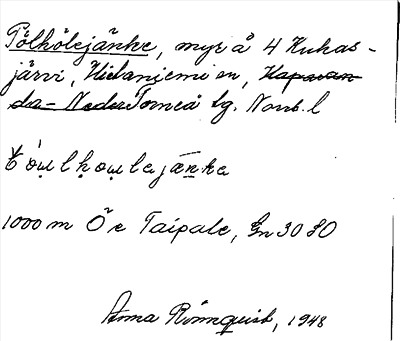 Pölhölejänke, myr å 4 Kuhas-
järvi, Hietaniemi sn, Haparan
da- Neder Torneå tg. Norrb. l
1000 m Ö e Taipale, Gn 30 80
Anna Rönnquist, 1948